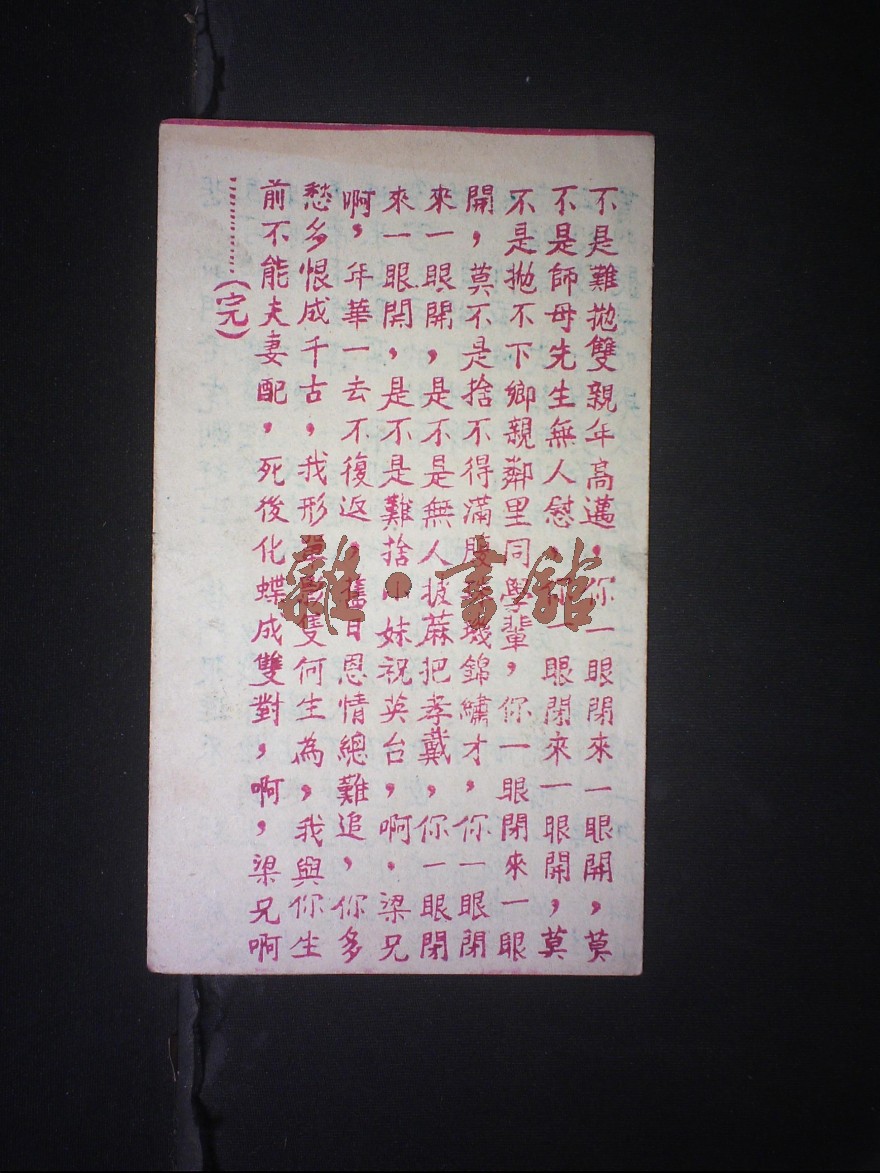 不是難拋雙親年高邁，你一眼閉來一眼開，莫
不是師母先生無人慰，你一眼閉來一眼開，莫
不是拋不下鄉親鄰里同學輩，你一眼閉來一眼
開，莫不是捨不得滿腹珠璣錦繡才，你一眼閉
來一眼開，是不是無人披蔴把孝戴，你一眼閉
來一眼開，是不是難捨小妹祝英台，啊．梁兄
啊，年華一去不復返，舊日恩情總難追，你多
愁多恨成千古，我形單影隻何生為，我與你生
前不能夫妻配，死後化蝶成雙對，啊，梁兄啊
……………（完）
雜·書館